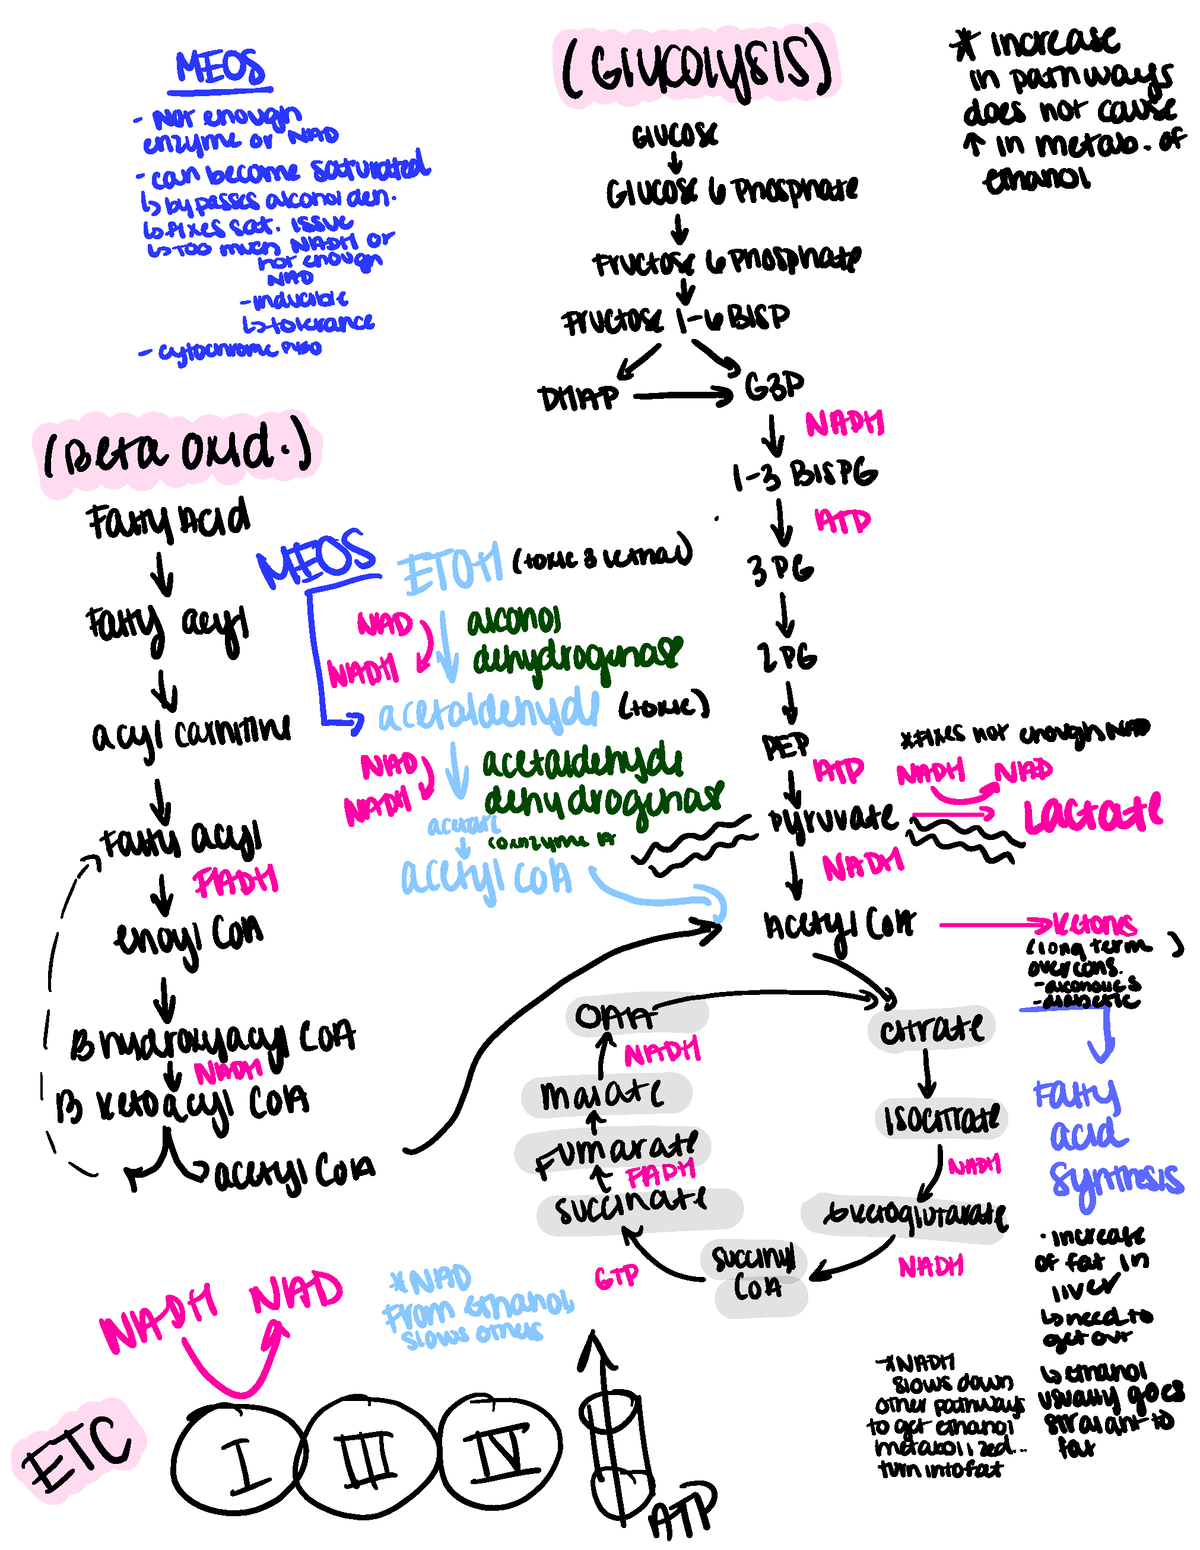 MEOS
- Not enough
enzyme or NAD
- can become saturated
↳ bypasses alcohol deh.
↳ fixes sat. issue
↳ too much NADH or
not enough
NAD
- inducible
↳ tolerance
- cytochrome P450
(Glucolysis)
Glucose
Glucose 6 Phosphate
Fructose 6 Phosphate
Fructose 1-6 BISP
DHAP
G3P
NADH
1-3 BISPG
ATP
3 PG
2 PG
PEP
ATP
Pyruvate
NADH
Acetyl CoA
* increase
in pathways
does not cause
↑ in metab. of
ethanol
*Fixes not enough NAD
NADH NAD
Lactate
(Beta Oxid.)
Fatty Acid
Fatty acyl
acyl carnitine
Fatty acyl
FADH
enoyl CoA
B hydroxyacyl CoA
NADH
B ketoacyl CoA
acetyl CoA
MEOS
ETOH (toxic & lethal)
NAD
NADH
alcohol
dehydrogenase
acetaldehyde (toxic)
NAD
NADH
acetaldehyde
dehydrogenase
acetate
coenzyme A
acetyl CoA
Ketones
(long term )
overcons.
- alcoholics
- diabetic
Fatty
acid
synthesis
· increase
of fat in
liver
↳ need to
get out
↳ ethanol
usually goes
straight to
fat
OAA
Citrate
Isocitrate
NADH
αketoglutarate
NADH
succinyl
CoA
GTP
succinate
FADH
Fumarate
malate
NADH
*NADH
slows down
other pathways
to get ethanol
metabolized..
turn into fat
NADH NAD
*NAD
From ethanol
slows others
ETC
I
III
IV
ATP